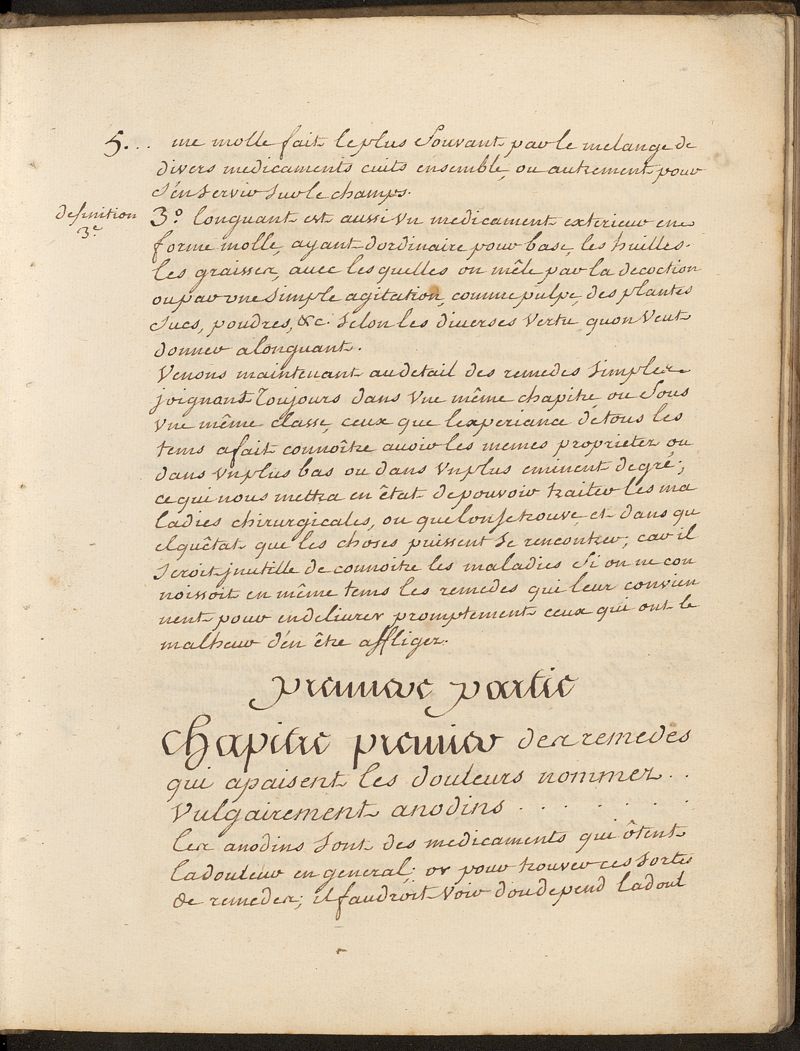 5... me molle fait le plus Souvant par le melange de
divers medicaments cuits ensemble, ou autrement pour
s'en Servir Sur le champs.
definition
3e
3.º longuant est aussi un medicament exterieur en
forme molle, ayant dordinaire pour base, les huilles.
les graisser, avec lesquelles on mêle par la decoction
ou par une Simple agitation, comme pulpe, des plantes
Sucs, poudres, &c. Selon les diverses Vertu quon Veut
donner a longuant.
Venons maintenant au detail des remedes Simpler
joignans Toujours dans Vne même chapitre ou Sous
Vne même classe, ceux que l'experiance de tous les
tems a fait connoître avoir les memes proprieter ou
dans Vn plus bas ou dans Vn plus eminent degré;
ce qui nous mettra en êtat de pouvoir traiter les ma
ladies chirurgicales, ou que lon se trouve, et dans qu
elquêtat que les choses puissent Se rencontrer; car il
Seroit jnutille de connoitre les maladies Si on ne con
noissoit en même tems les remedes qui leur convien
nent pour en delivrer promptement ceux qui ont le
malheur d'én être affliger.
premiere partie
Chapitre premier der remedes
qui apaisent les douleurs nommer..
Vulgairement anodins . . . . . . .
ler anodins Sont des medicaments qui ôtent
la douleur en general; or pour trouver ces Sortes
de remeder; il faudroit Voir dou depend la doul